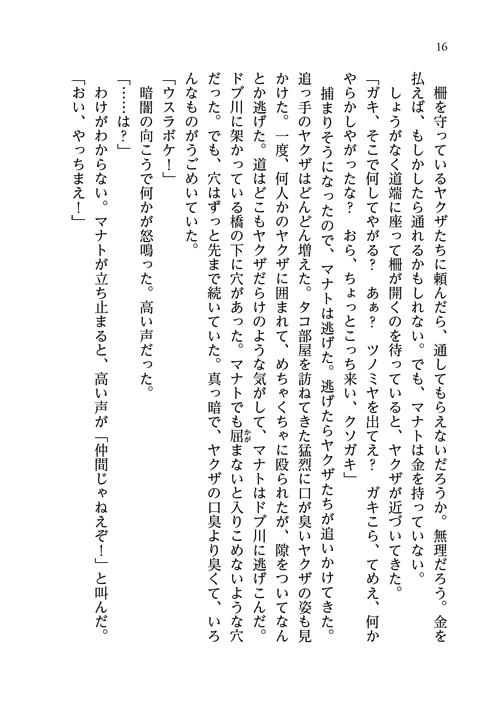 16
柵を守っているヤクザたちに頼んだら、通してもらえないだろうか。無理だろう。金を
払えば、もしかしたら通れるかもしれない。でも、マナトは金を持っていない。
しょうがなく道端に座って柵が開くのを待っていると、ヤクザが近づいてきた。
「ガキ、そこで何してやがる？　あぁ？　ツノミヤを出てえ？　ガキこら、てめえ、何か
やらかしやがったな？　おら、ちょっとこっち来い、クソガキ」
捕まりそうになったので、マナトは逃げた。逃げたらヤクザたちが追いかけてきた。
追っ手のヤクザはどんどん増えた。タコ部屋を訪ねてきた猛烈に口が臭いヤクザの姿も見
かけた。一度、何人かのヤクザに囲まれて、めちゃくちゃに殴られたが、隙をついてなん
とか逃げた。道はどこもヤクザだらけのような気がして、マナトはドブ川に逃げこんだ。
ドブ川に架かっている橋の下に穴があった。マナトでも屈まないと入りこめないような穴
かが
だった。でも、穴はずっと先まで続いていた。真っ暗で、ヤクザの口臭より臭くて、いろ
んなものがうごめいていた。
「ウスラボケ！」
暗闇の向こうで何かが怒鳴った。高い声だった。
「……は？」
わけがわからない。マナトが立ち止まると、高い声が「仲間じゃねえぞ！」と叫んだ。
「おい、やっちまえ！」